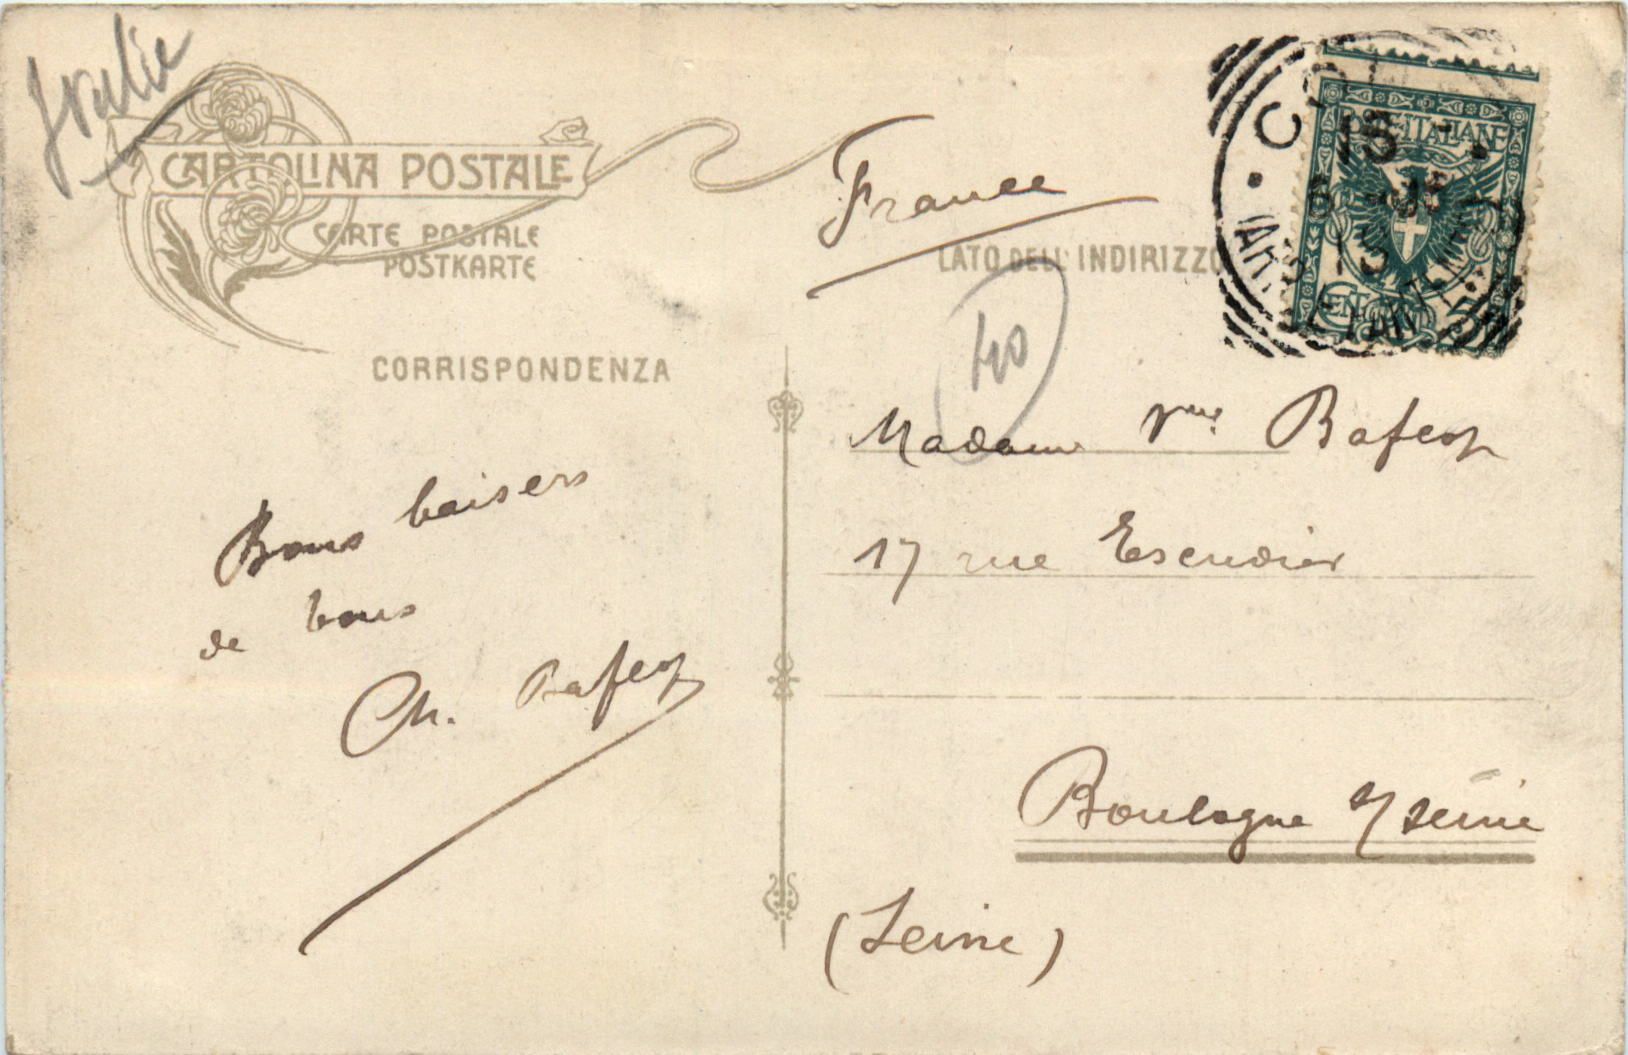 Italie
CARTOLINA POSTALE
CARTE POSTALE
POSTKARTE
France
LATO DELL'INDIRIZZO
CORRISPONDENZA
40
POSTE ITALIANE
Bons baisers
de tous
Ch.
Madame Vve
17 rue Escudier
Boulogne s/ Seine
(Seine)